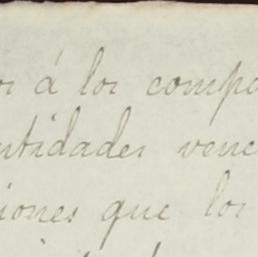 os á los compa
ntidades venc
iones que los